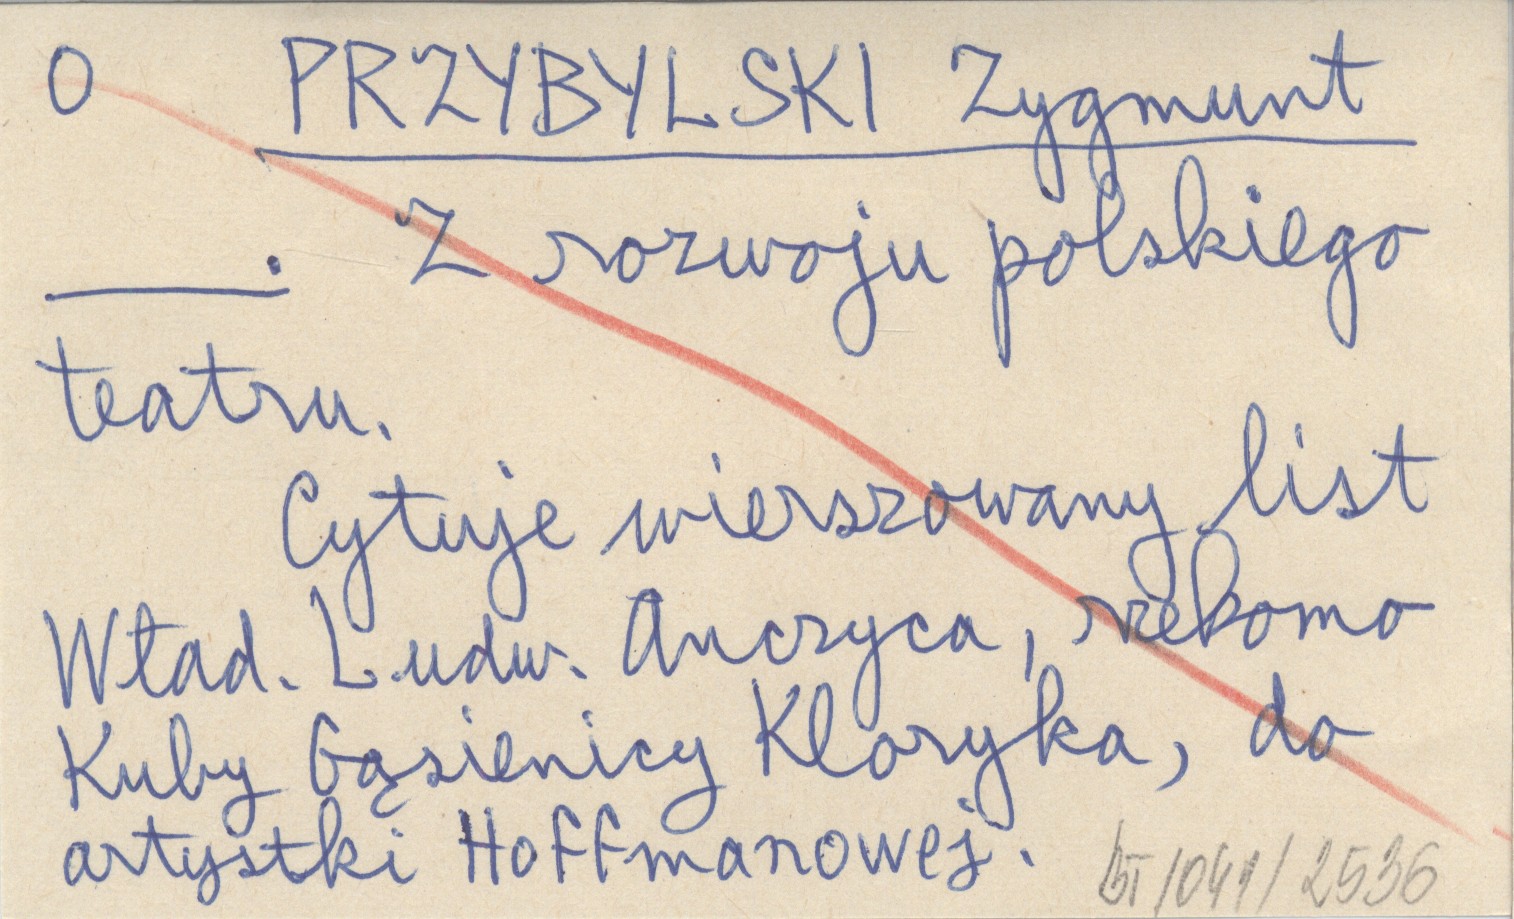 O PRZYBYLSKI Zygmunt
. Z rozwoju polskiego
teatru.
Cytuje wierszowany list
Wład. Ludw. Anczyca, rzekomo
Kuby Gąsienicy Kloryka, do
artystki Hoffmanowej.
BT/041/2536